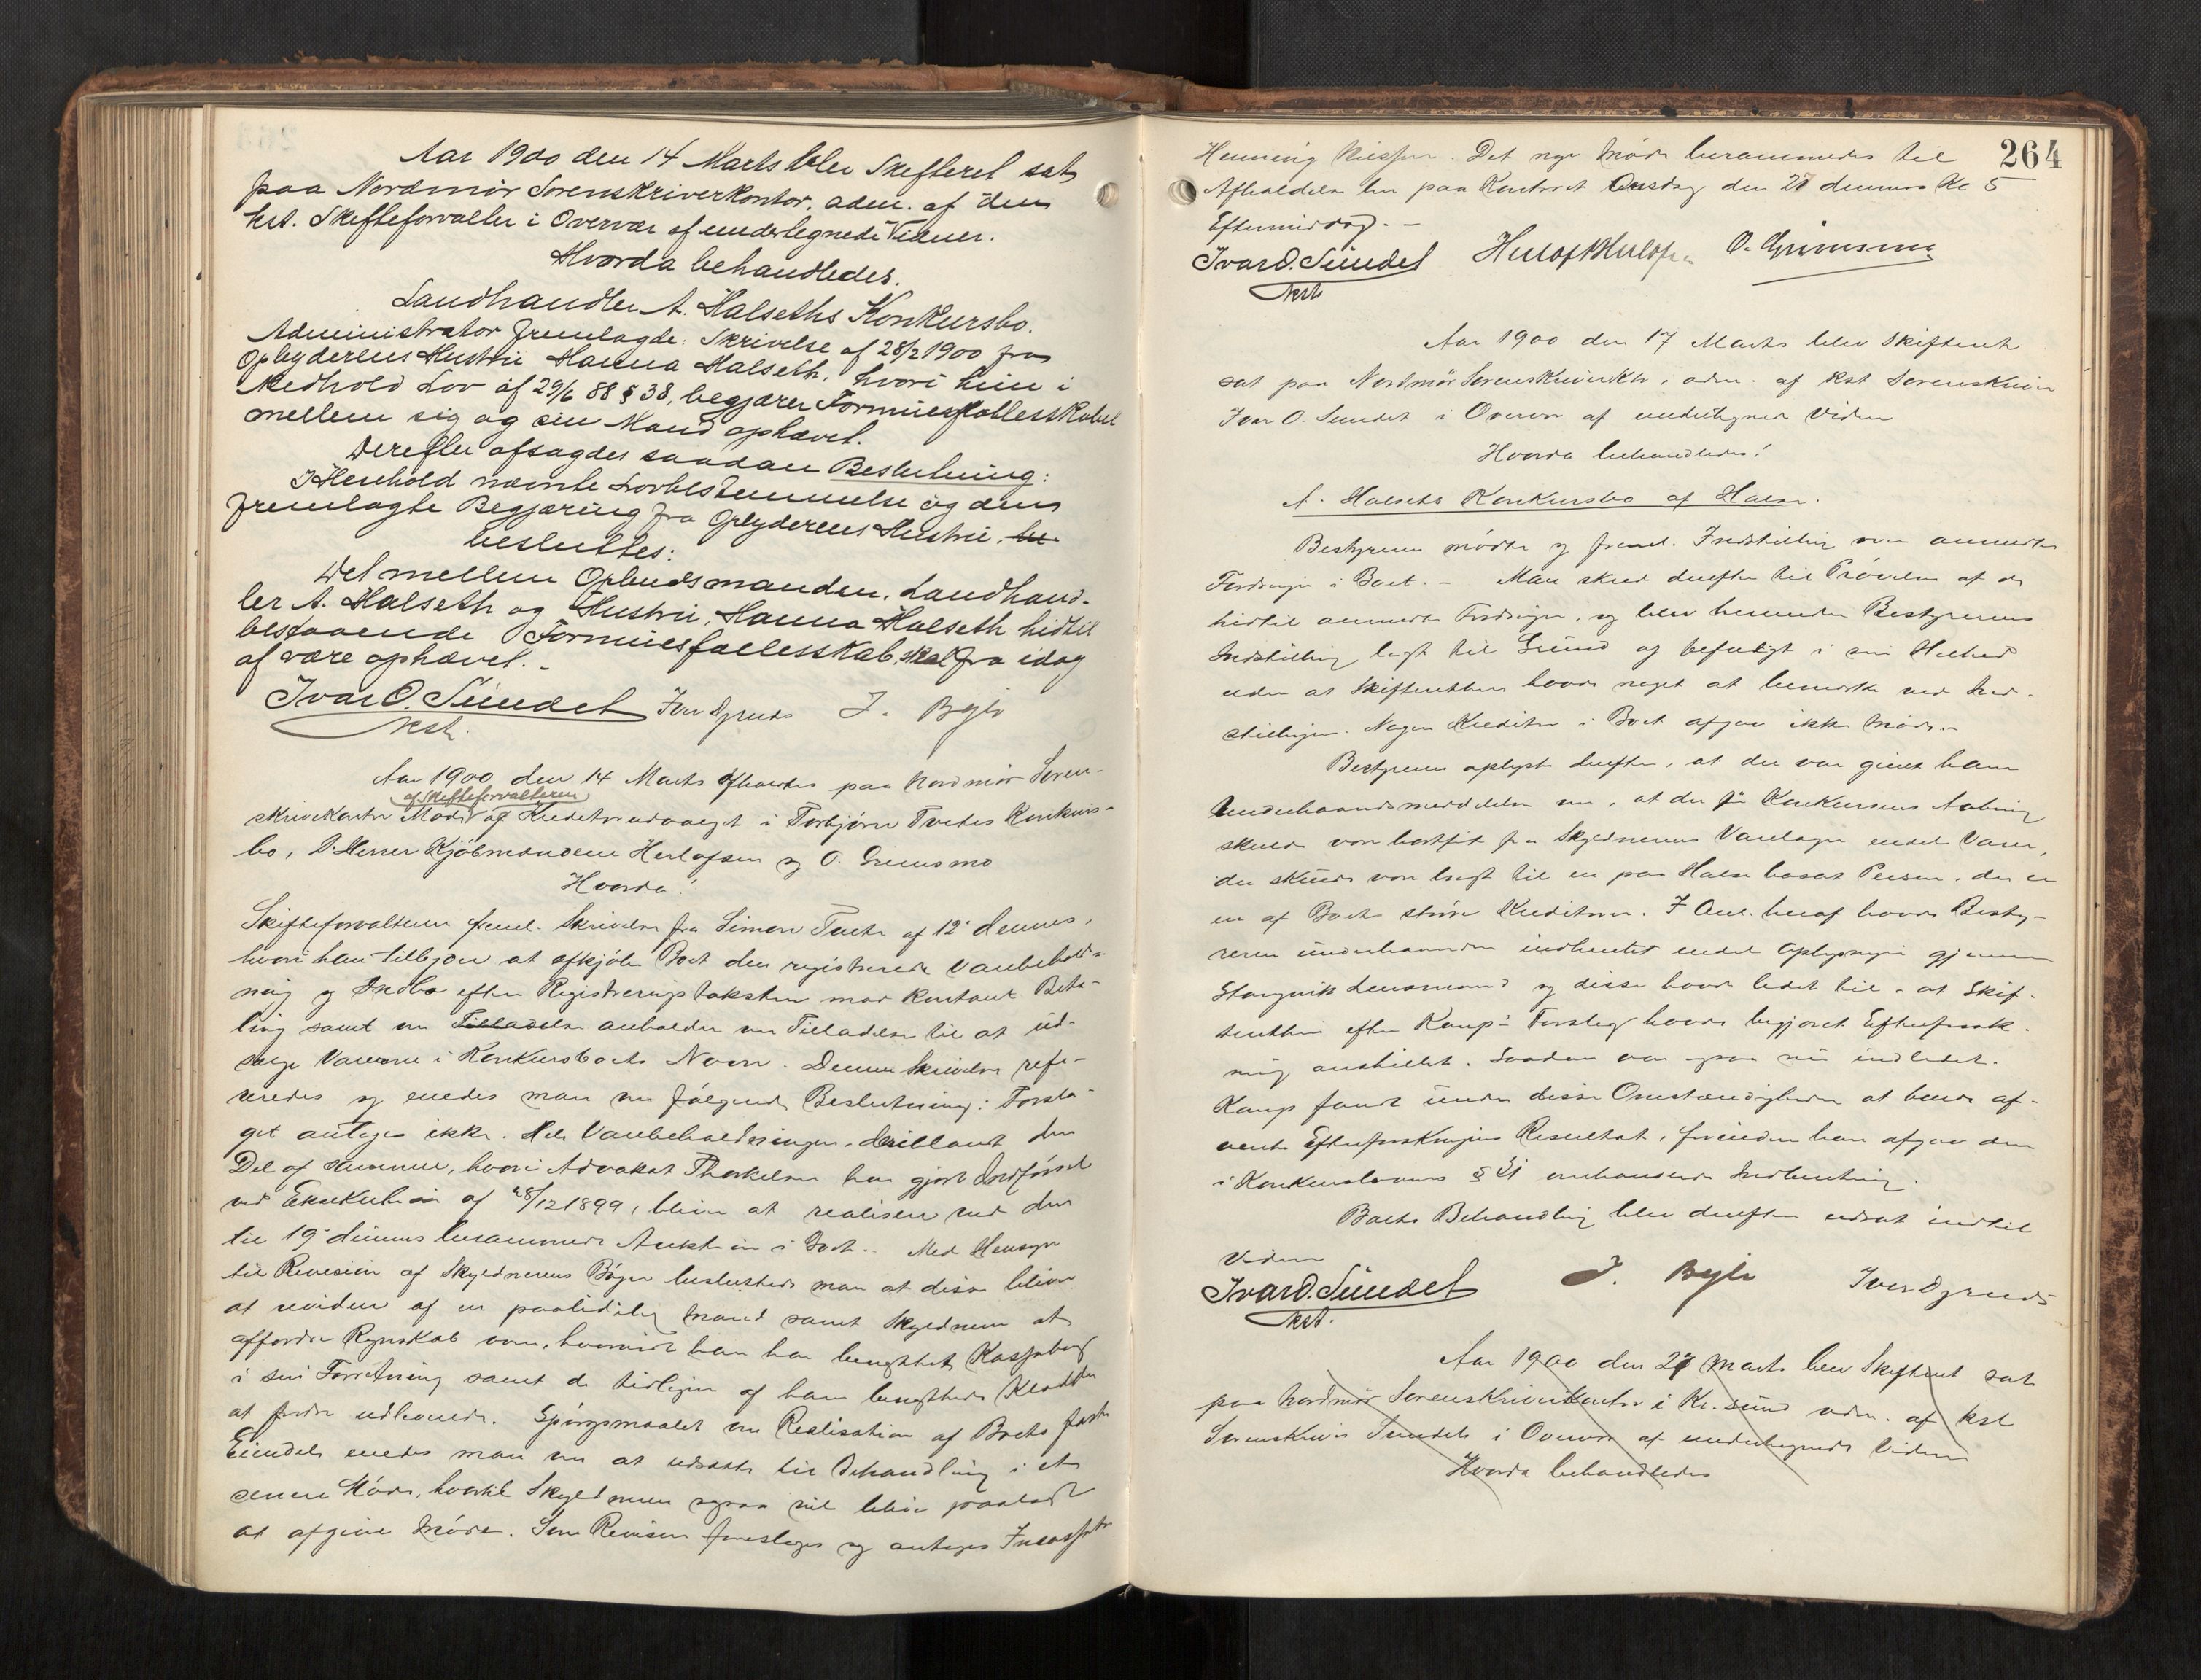 Aar 1900 den 14 Marts blev Skifteret sat
paa Nordmør Sorenskriverkontor, adm. af den
kst. Skifteforvalter i Overvær af undertegnede Vidner.
Hvorda behandledes.
Landhandler A. Halseths Konkursbo.
Administrator fremlagde: Skrivelse af 28/2 1900 fra
Opbyderens Hustru Hanna Halseth, hvori hun i
Medhold Lov af 29/6 88 § 38, begjærer Formuesfællesskabet
mellem sig og sin Mand ophævet.
Derefter afsagdes saadan Beslutning:
I Henhold nævnte Lovbestemmelse og den
fremlagte Begjæring fra Opbyderens Hustru, be
besluttes:
Det mellem Opbudsmanden, Landhand-
ler A. Halseth og Hustru, Hanna Halseth hidtil
bestaaende Formuesfællesskab skal fra idag
af være ophævet. -
Ivar O. Sundet Iver Dyrnes J. Bøjle
kst.
Aar 1900 den 14 Marts afholdtes paa Nordmør Soren-
af Skifteforvalteren
skriverkontor Møde af Kreditorudvalget i Torbjørn Tvetes Konkurs-
bo, D'Herrer Kjøbmændene Herlofsen og O. Grimsmo
Hvorda!
Skifteforvalteren freml. Skrivelse fra Simon Tvete af 12' dennes,
hvori han tilbyder at afkjøbe Boet den registrerede Varebehold-
ning og Indbo efter Registreringstaksten mod kontant Beta-
ling samt om Tilladelse anholder om Tilladelse til at ud-
sælge Varerne i Konkursboets Navn. Denne Skrivelse refe-
reredes og enedes man om følgende Beslutning: Forsla-
get antages ikke. Hele Varebeholdningen, deriblandt den
Del af samme, hvori Advokat Thorkelsen har gjort Indførsel
ved Exekution af 28/12 1899, bliver at realisere ved den
til 19' dennes berammede Auktion i Boet. - Med Hensyn
til Revision af Skyldnerens Bøger besluttede man at disse bliver
at revidere af en paalidelig Mand samt Skyldneren at
affordre Regnskab over, hvorvidt han har benyttet Kassabog
i sin Forretning samt de tidligere af ham benyttede Kladder
at fordre udleveret. Spørgsmaalet om Realisation af Boets faste
Eiendele enedes man om at udsætte til Behandling i et
senere Møde, hvortil Skyldneren ogsaa vil blive paalagt
at afgive Møde. Som Revisor foresloges og antoges Incassator
Henning . Det nye Møde berammedes til
Afholdelse her paa Kontoret Onsdag den 21 dennes Kl 5
Eftermiddag. -
Ivar O. Sundet Herlof Herlofsen O. Grimsmo
kst
264
Aar 1900 den 17 Marts blev Skifteret
sat paa Nordmør Sorenskriverktr, adm. af kst Sorenskriver
Ivar O. Sundet i Overvær af undertegnede Vidner
Hvorda behandledes!
A. Halseths Konkursbo af Halse.
Bestyreren mødte og freml. Indstilling over anmeldte
Fordringer i Boet. - Man skred derefter til Prøvelse af de
hidtil anmeldte Fordringer, og blev herunder Bestyrerens
Indstilling lagt til Grund og befulgt i sin Helhed
uden at Skifteretten havde noget at bemærke ved Ind-
stillingen. Nogen Kreditor i Boet afgav ikke Møde. -
Bestyreren oplyste derefter, at der var givet ham
Underhaandsmeddelelse om, at der før Konkursens Aabning
skulde være bortført fra Skyldnerens Varelager endel Varer,
der skulde være bragt til en paa Halse bosat Person, der er
en af Boets større Kreditorer. I Anl. heraf havde Besty-
reren underhaanden indhentet endel Oplysninger gjennem
Stangvik Lensmand og disse havde ledet til, at Skif-
teretten efter Kamps Forslag havde begjæret Efterforsk-
ning anstillet. Saadan var ogsaa nu indledet.
Kamp fandt under disse Omstændigheder at burde af-
vente Efterforskningens Resultat, forinden han afgav den
i Konkurslovens § omhandlede Indberetning.
Boets Behandling blev derefter udsat indtil
Videre
Ivar O. Sundet J. Bøjle Iver Dyrnes
kst.
Aar 1900 den 27 Marts blev Skifteret sat
paa Nordmør Sorenskriverkontor i Kr.sund adm. af kst
Sorenskriver Sundet i Overvær af undertegnede Vidner
Hvorda behandledes